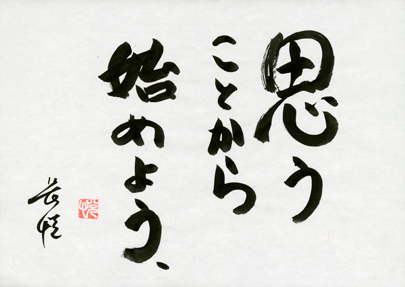 思う
ことから
始めよう、